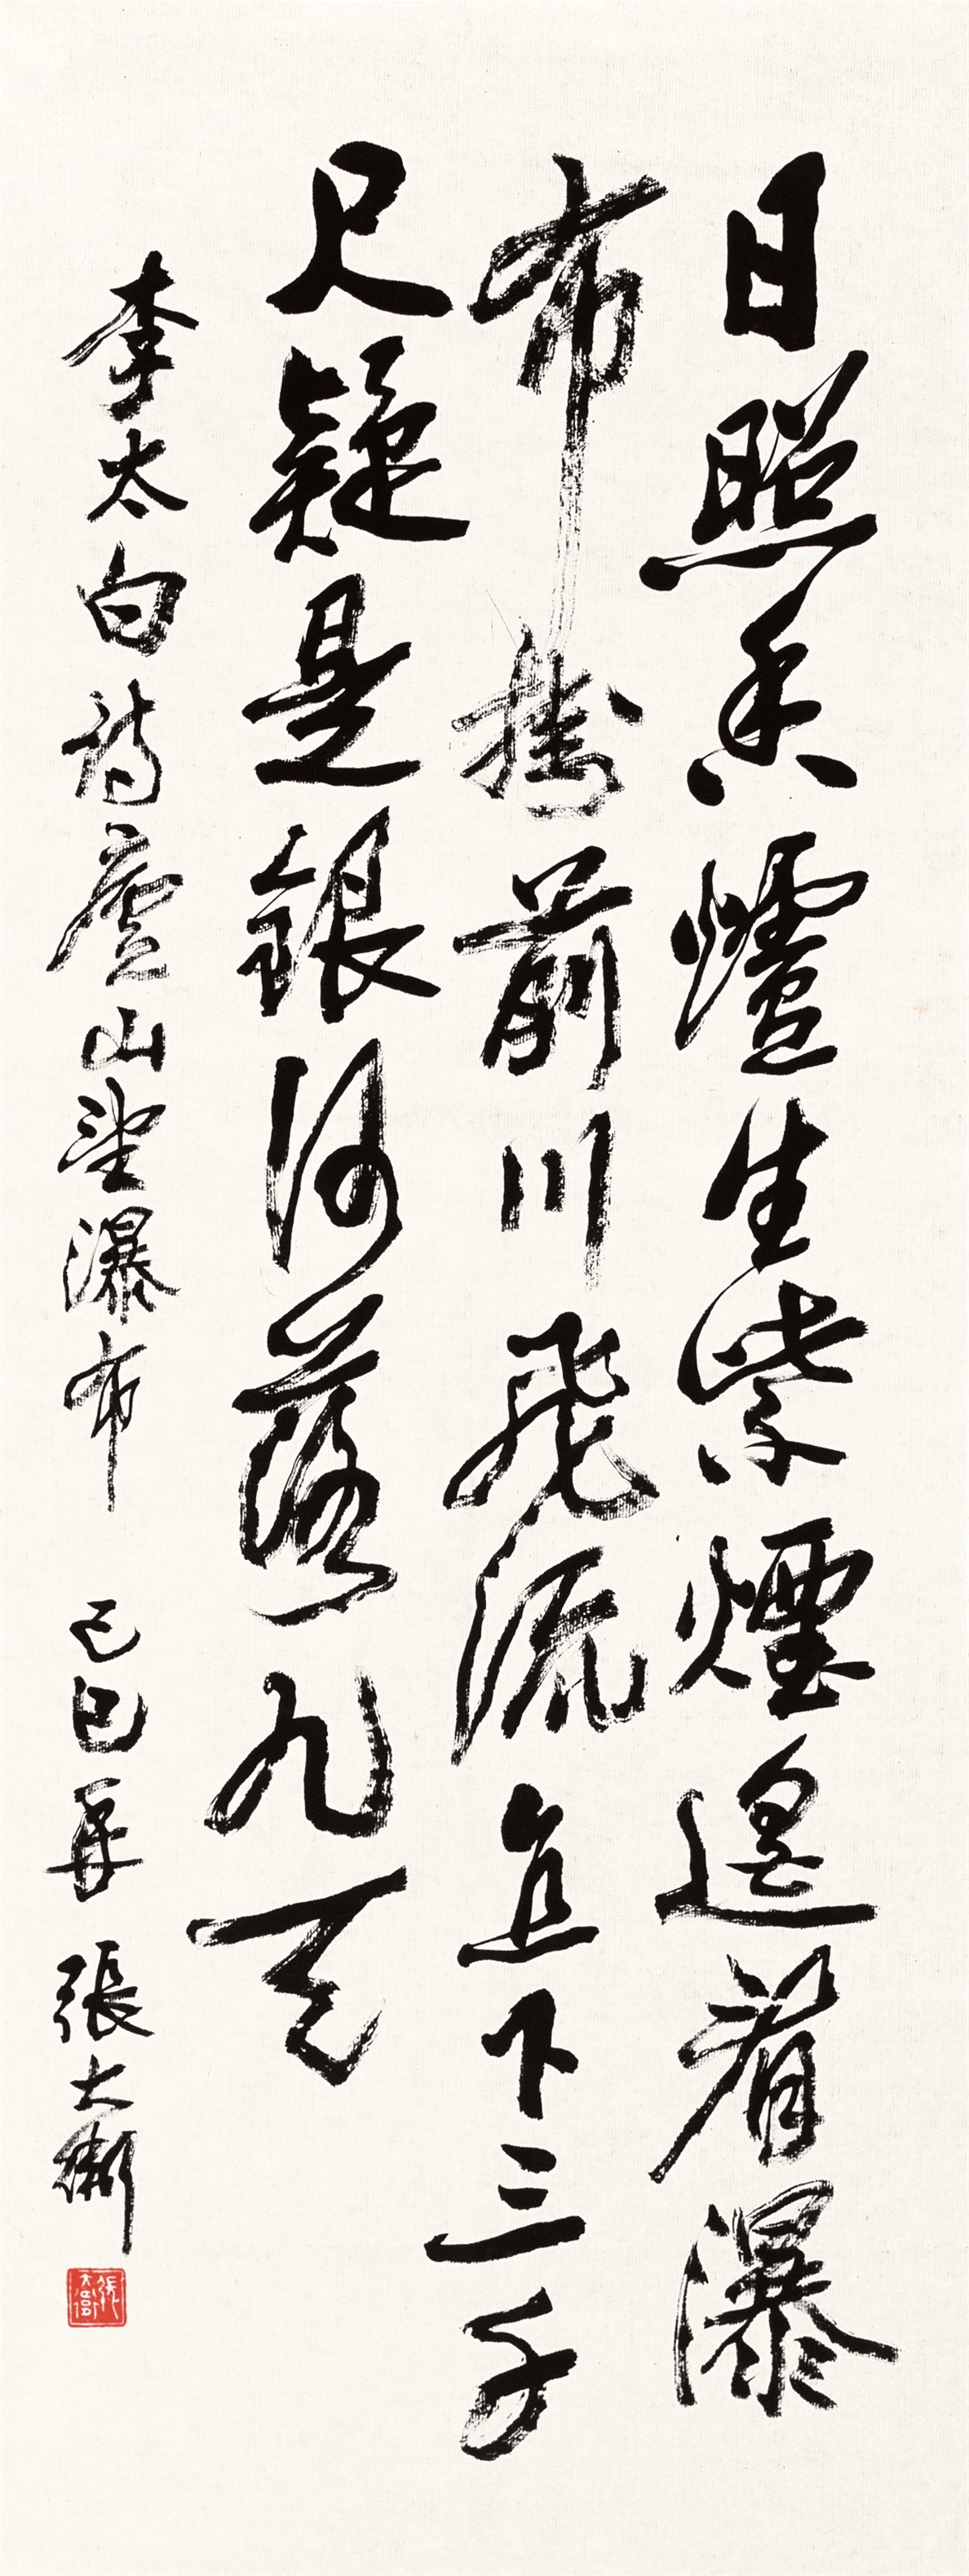 日照香爐生紫煙遥看瀑
布掛前川飛流直下三千
尺疑是銀河落九天
李太白詩廬山望瀑布 己巳年 張大衛